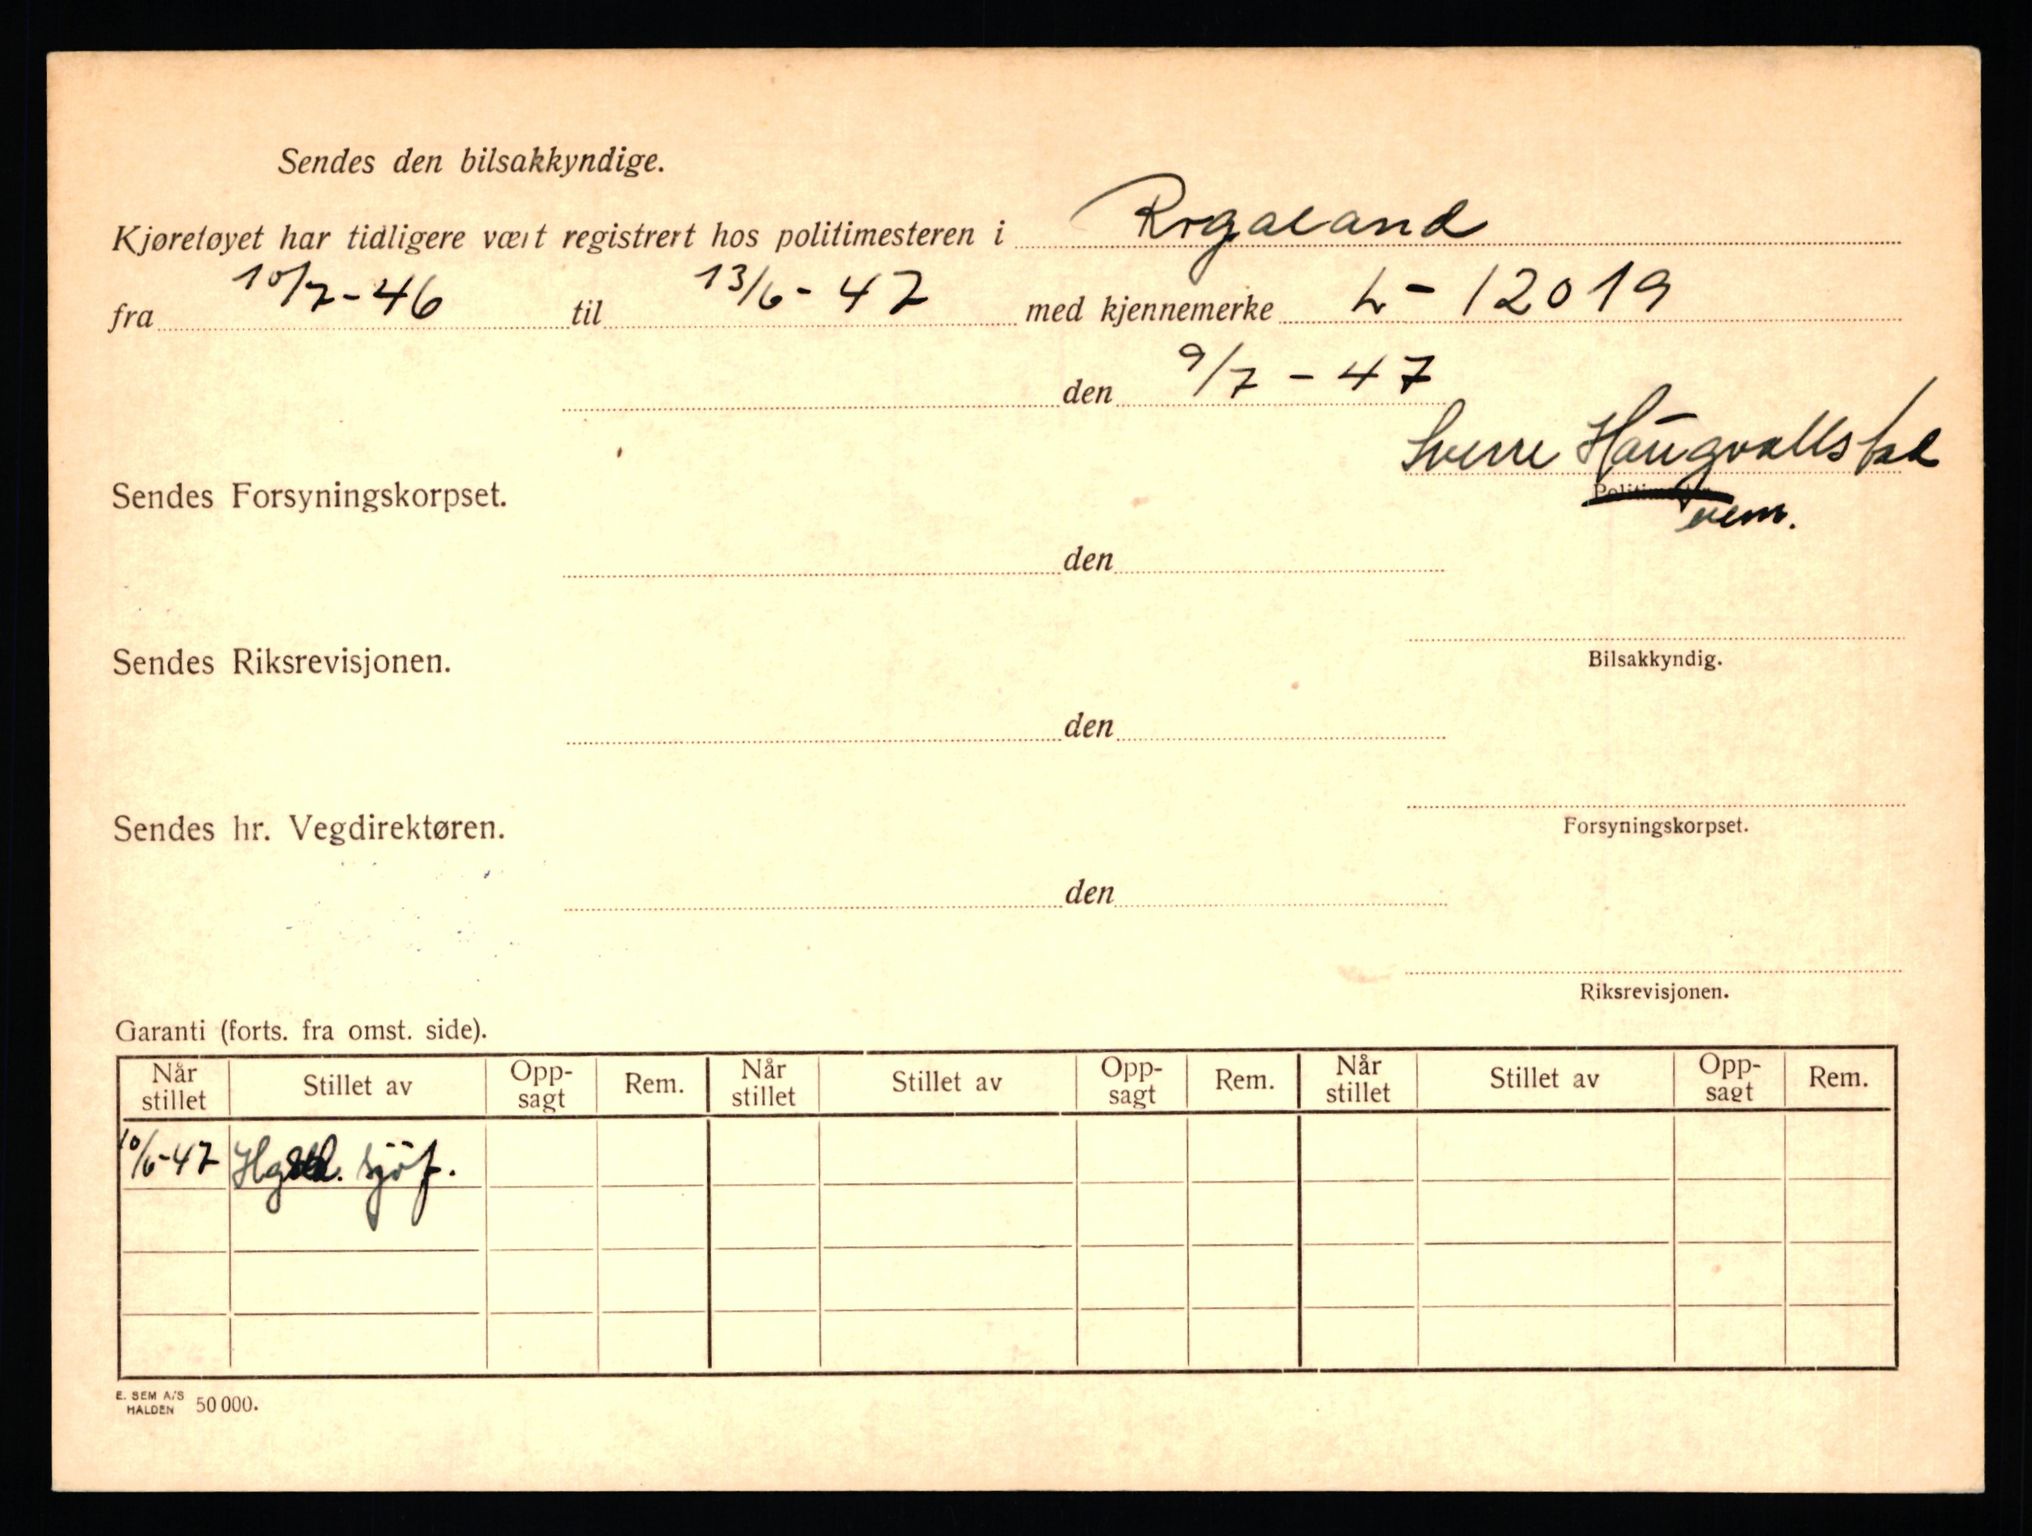 Sendes den bilsakkyndige.
Kjøretøyet har tidligere vært registrert hos politimesteren i Rogaland
fra 10/7-46 til 13/6-47 med kjennemerke L-12019
den 9/7-47
Sverre Haugvallstad
Politimester
Sendes Forsyningskorpset.
den
Bilsakkyndig.
Sendes Riksrevisjonen.
den
Forsyningskorpset.
Sendes hr. Vegdirektøren.
den
Riksrevisjonen.
Garanti (forts. fra omst. side).
Når stillet Stillet av Opp-sagt Rem. Når stillet Stillet av Opp-sagt Rem. Når stillet Stillet av Opp-sagt Rem.
10/6-47 sjöf.
E. SEM A/S
HALDEN 50 000.